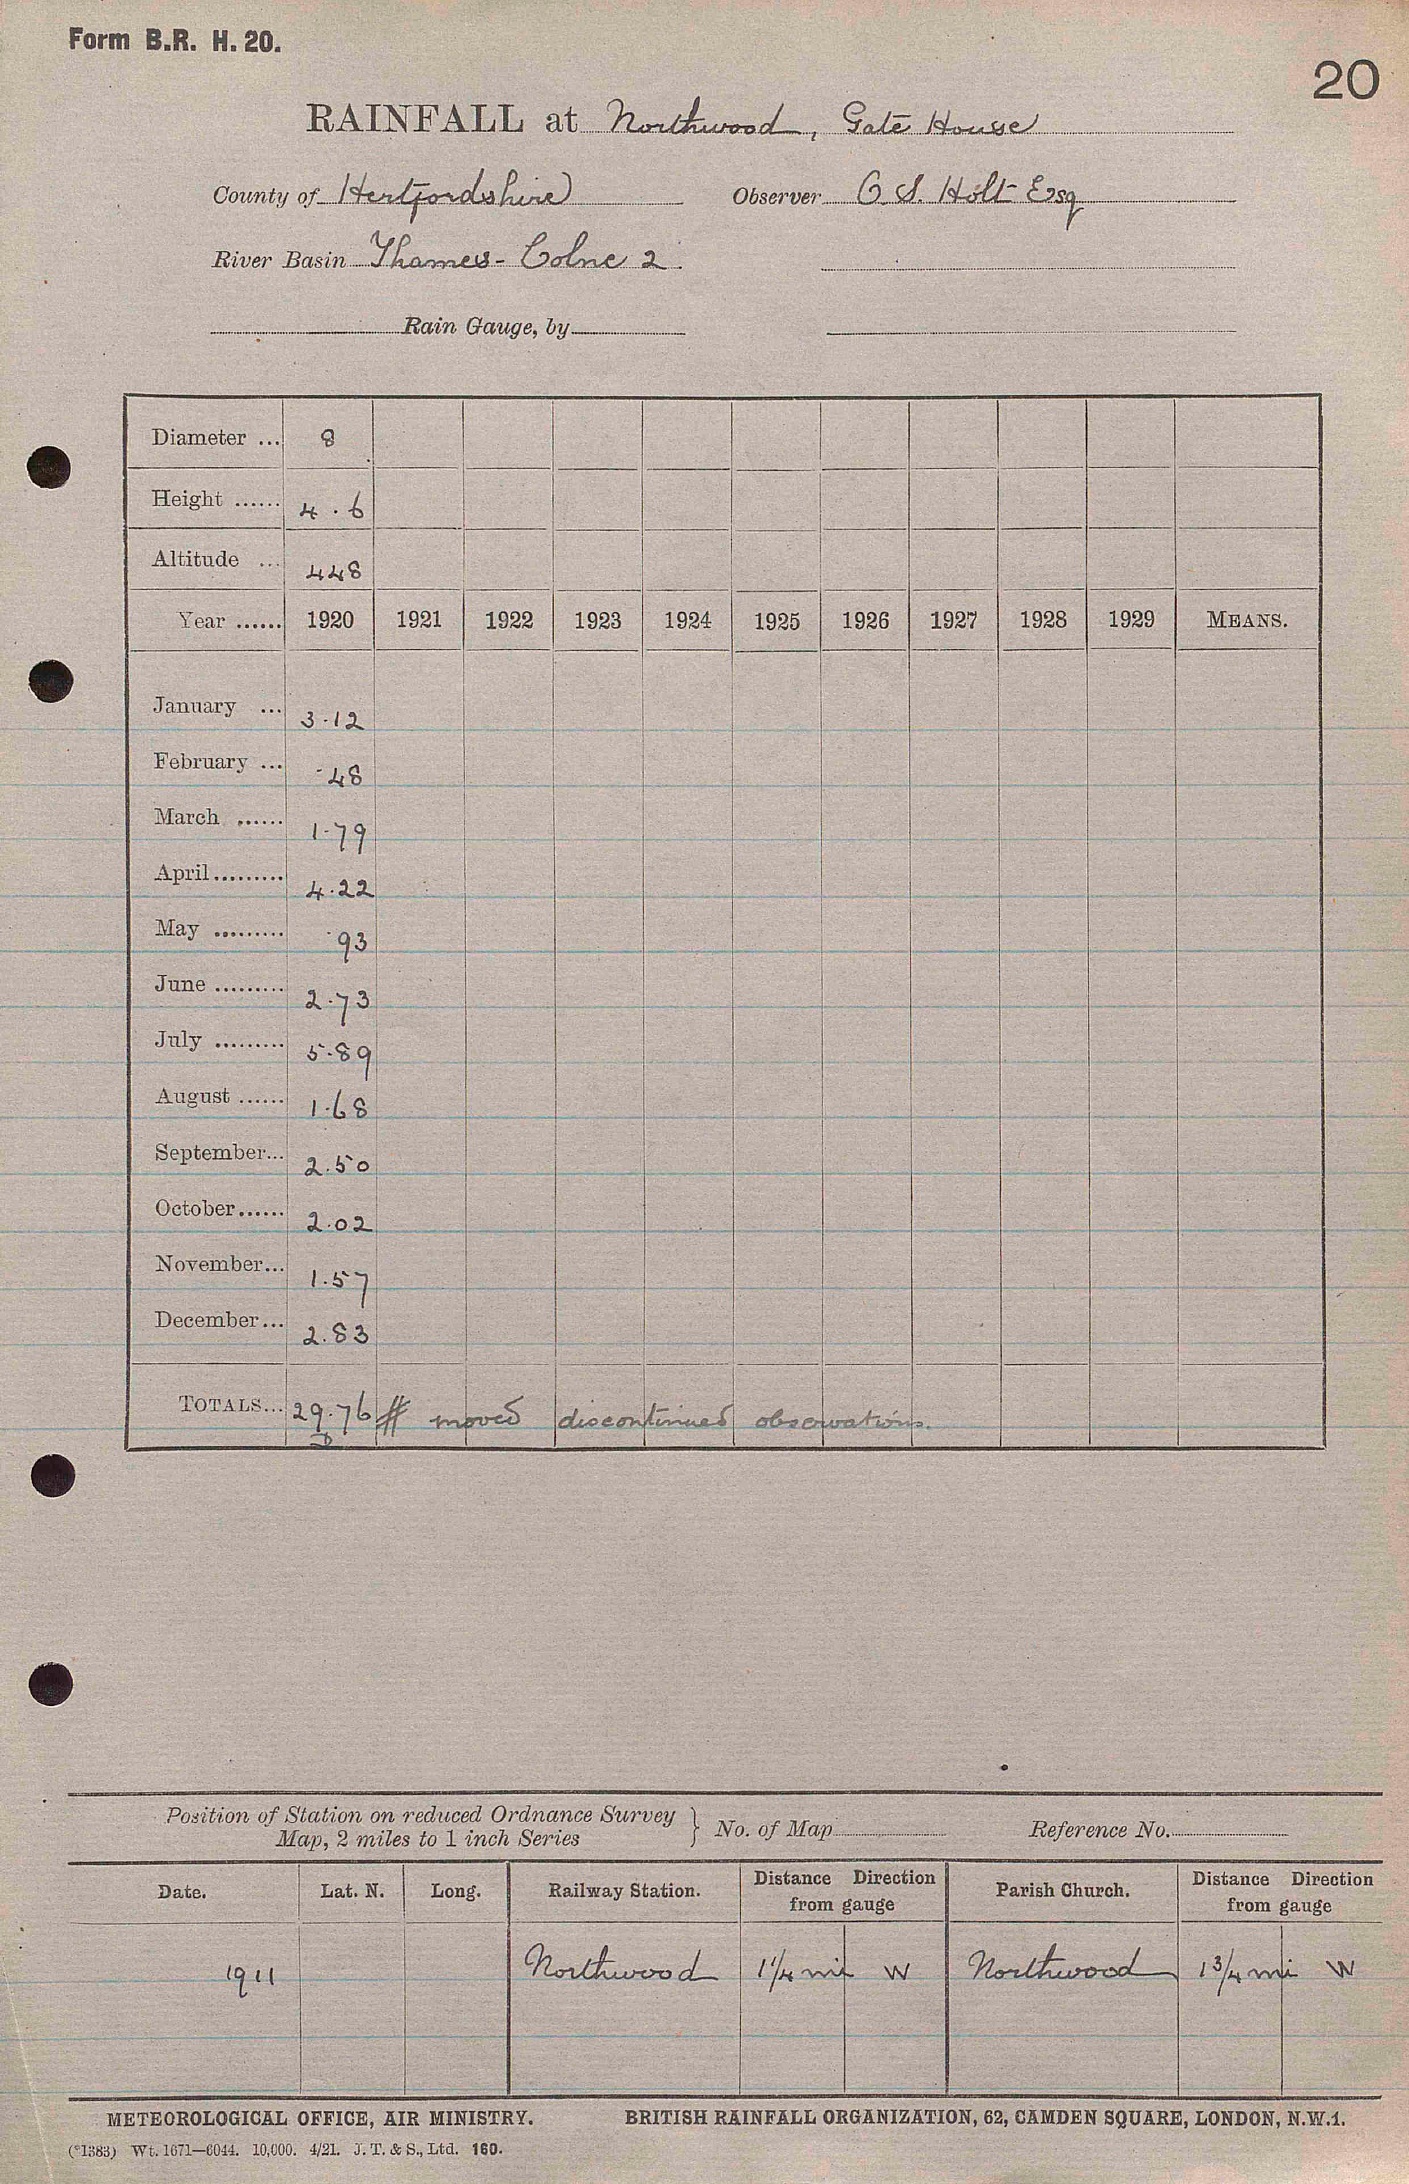 Form B.R. H. 20.
20
RAINFALL at Northwood, Gate House
County of Hertfordshire Observer O. S. Holt Esq
River Basin Thames - Colne 2.
Rain Gauge, by
Diameter ... 8
Height ...... 4 . 6
Altitude ... 448
Year ...... 1920 1921 1922 1923 1924 1925 1926 1927 1928 1929 MEANS.
January ... 3.12
February ... .48
March ...... 1.79
April ......... 4.22
May ......... .93
June ......... 2.73
July ......... 5.89
August ...... 1.68
September... 2.50
October...... 2.02
November... 1.57
December... 2.83
TOTALS... 29.76 # moved discontinued observations.
Position of Station on reduced Ordnance Survey
Map, 2 miles to 1 inch Series } No. of Map Reference No.
Date. Lat. N. Long. Railway Station. Distance Direction from gauge Parish Church. Distance Direction from gauge
1911 Northwood 1 1/4 mi W Northwood 1 3/4 mi W
METEOROLOGICAL OFFICE, AIR MINISTRY. BRITISH RAINFALL ORGANIZATION, 62, CAMDEN SQUARE, LONDON, N.W.1.
(*1383) Wt. 1671—6044. 10,000. 4/21. J. T. & S., Ltd. 160.